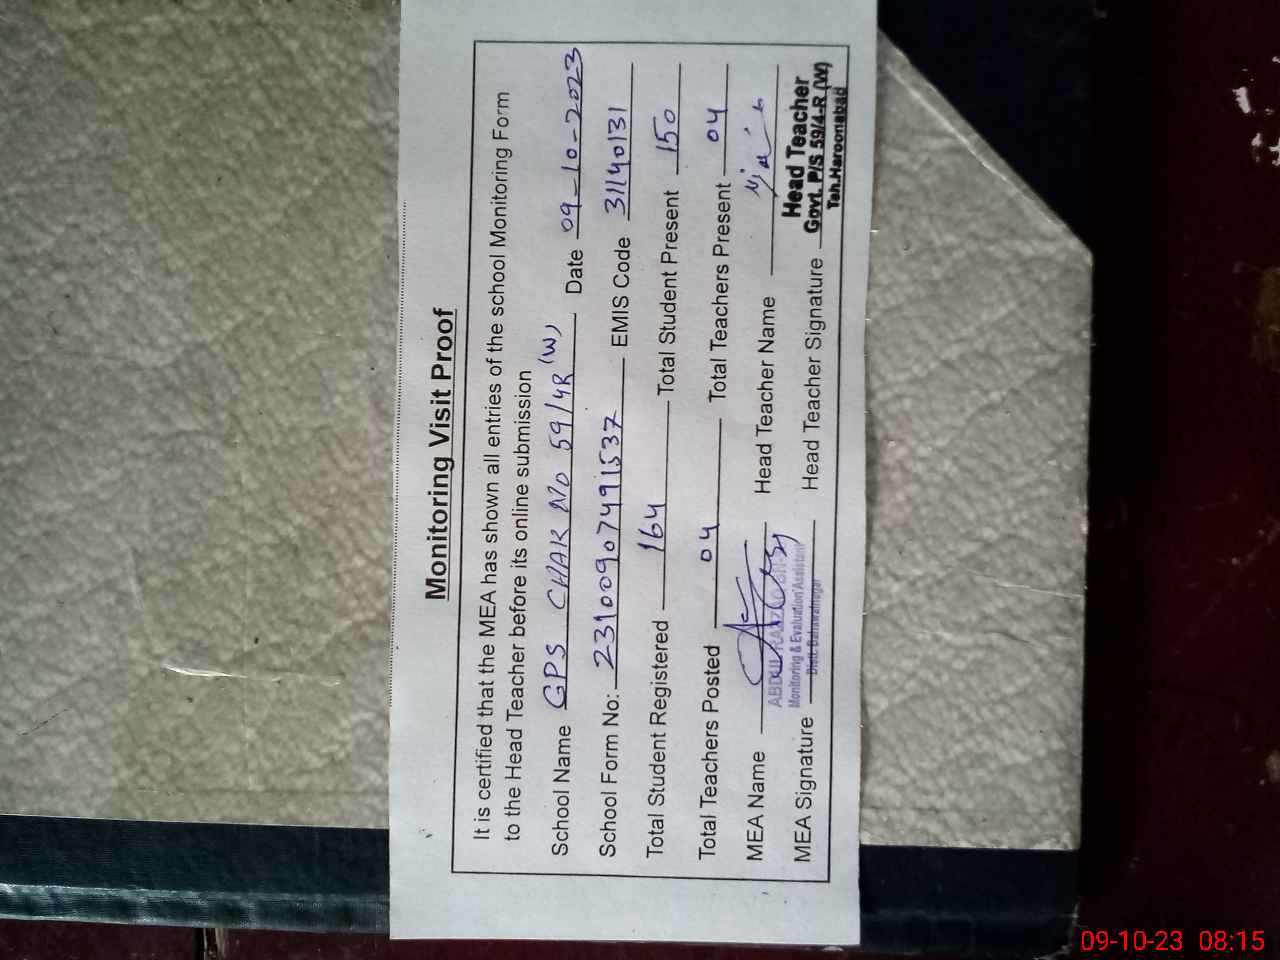 Monitoring Visit Proof
It is certified that the MEA has shown all entries of the school Monitoring Form
to the Head Teacher before its online submission
School Name GPS CHAK NO 59/4R (W) Date 09-10-2023
School Form No: 231009074991537 EMIS Code 31140131
Total Student Registered 164 Total Student Present 150
Total Teachers Posted 04 Total Teachers Present 04
MEA Name Head Teacher Name
ABDUL RAZZAQ
Monitoring & Evaluation Assistant
Distt. Bahawalnagar
MEA Signature Head Teacher Signature
Head Teacher
Govt. P/S 59/4-R (W)
Teh.Haroonabad
09-10-23 08:15